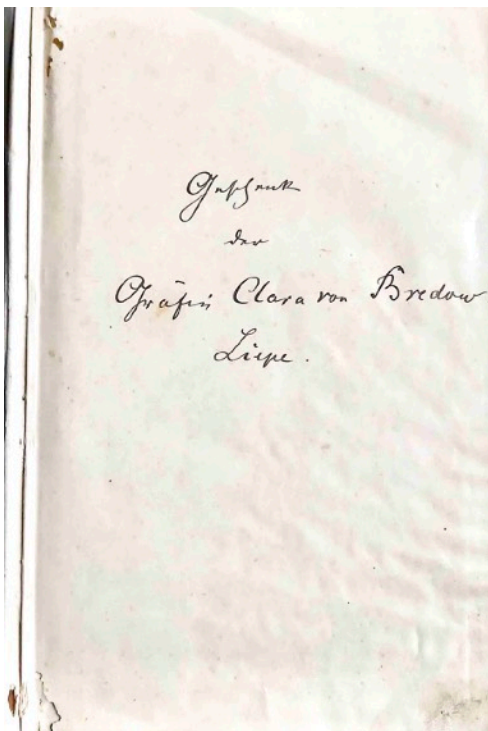 Geschenk
der
Gräfin Clara von Bredow
Liepe.